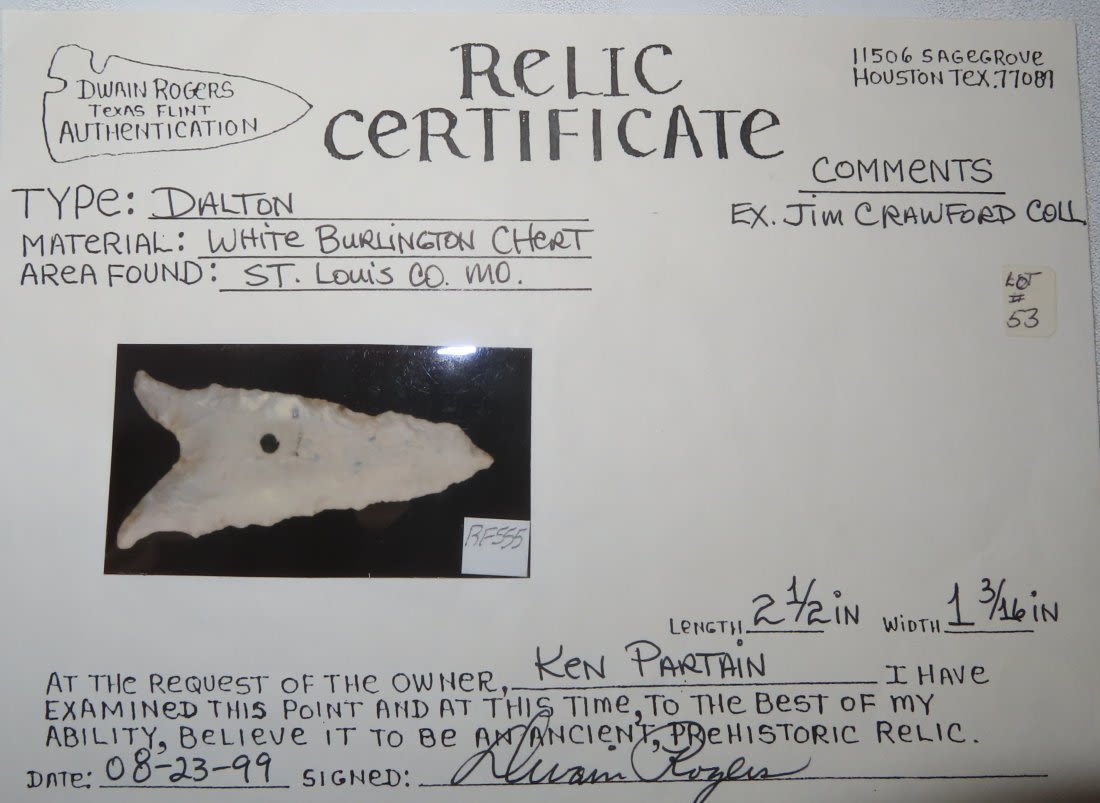 DWAIN ROGERS
TEXAS FLINT
AUTHENTICATION
RELIC
CERTIFICATE
11506 SAGEGROVE
HOUSTON TEX. 77089
TYPE: DALTON
MATERIAL: WHITE BURLINGTON CHERT
AREA FOUND: ST. LOUIS CO. MO.
COMMENTS
EX. JIM CRAWFORD COLL
LOT
#
53
RF555
LENGTH 2 1/2 IN WIDTH 1 3/16 IN
AT THE REQUEST OF THE OWNER, KEN PARTAIN I HAVE
EXAMINED THIS POINT AND AT THIS TIME, TO THE BEST OF MY
ABILITY, BELIEVE IT TO BE AN ANCIENT, PREHISTORIC RELIC.
DATE: 08-23-99 SIGNED: Dwain Rogers